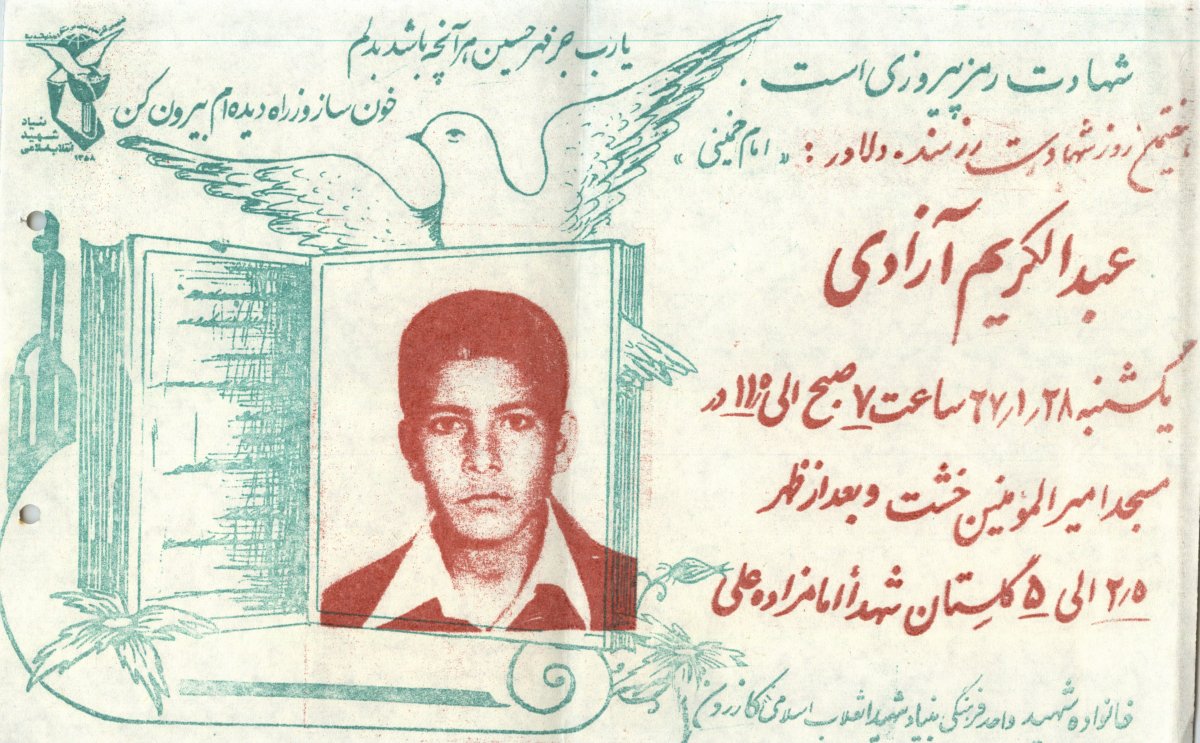 شهادت رمز پیروزی است.
« امام خمینی »
هفتمین روز شهادت رزمنده دلاور :
عبدالکریم آزادی
یکشنبه ۶۷٫۱٫۲۸ ساعت ۷ صبح الی ۱۱٫۵ در
مسجد امیرالمؤمنین خشت و بعد از ظهر
۲٫۵ الی ۵ گلستان شهدأ امامزاده علی
خانواده شهید واحد فرهنگی بنیاد شهید انقلاب اسلامی کازرون
یا رب جز مهر حسین هر آنچه باشد بدلم
خون ساز و ز راه دیده ام بیرون کن
بنیاد
شهید
انقلاب اسلامی
۱۳۵۸